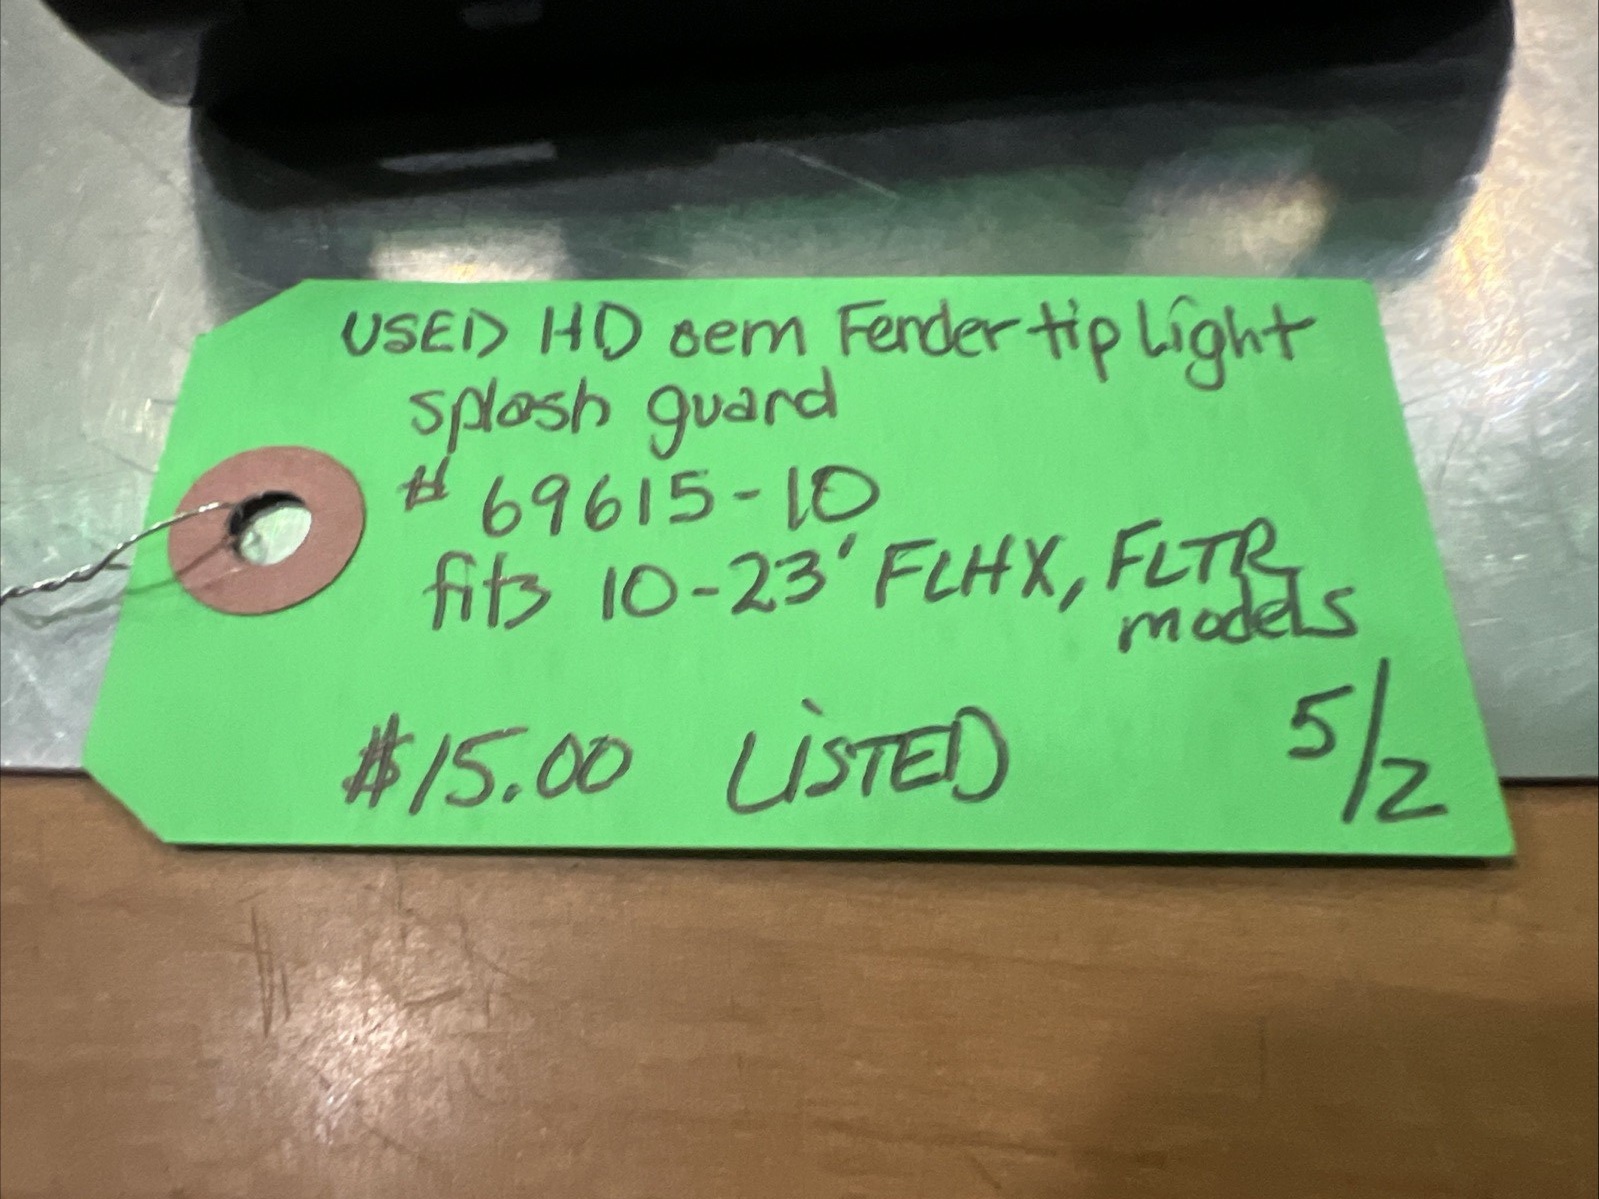 USED HD oem Fender tip Light
splash guard
# 69615-10
fits 10-23' FLHX, FLTR
models
$15.00 LISTED 5/2